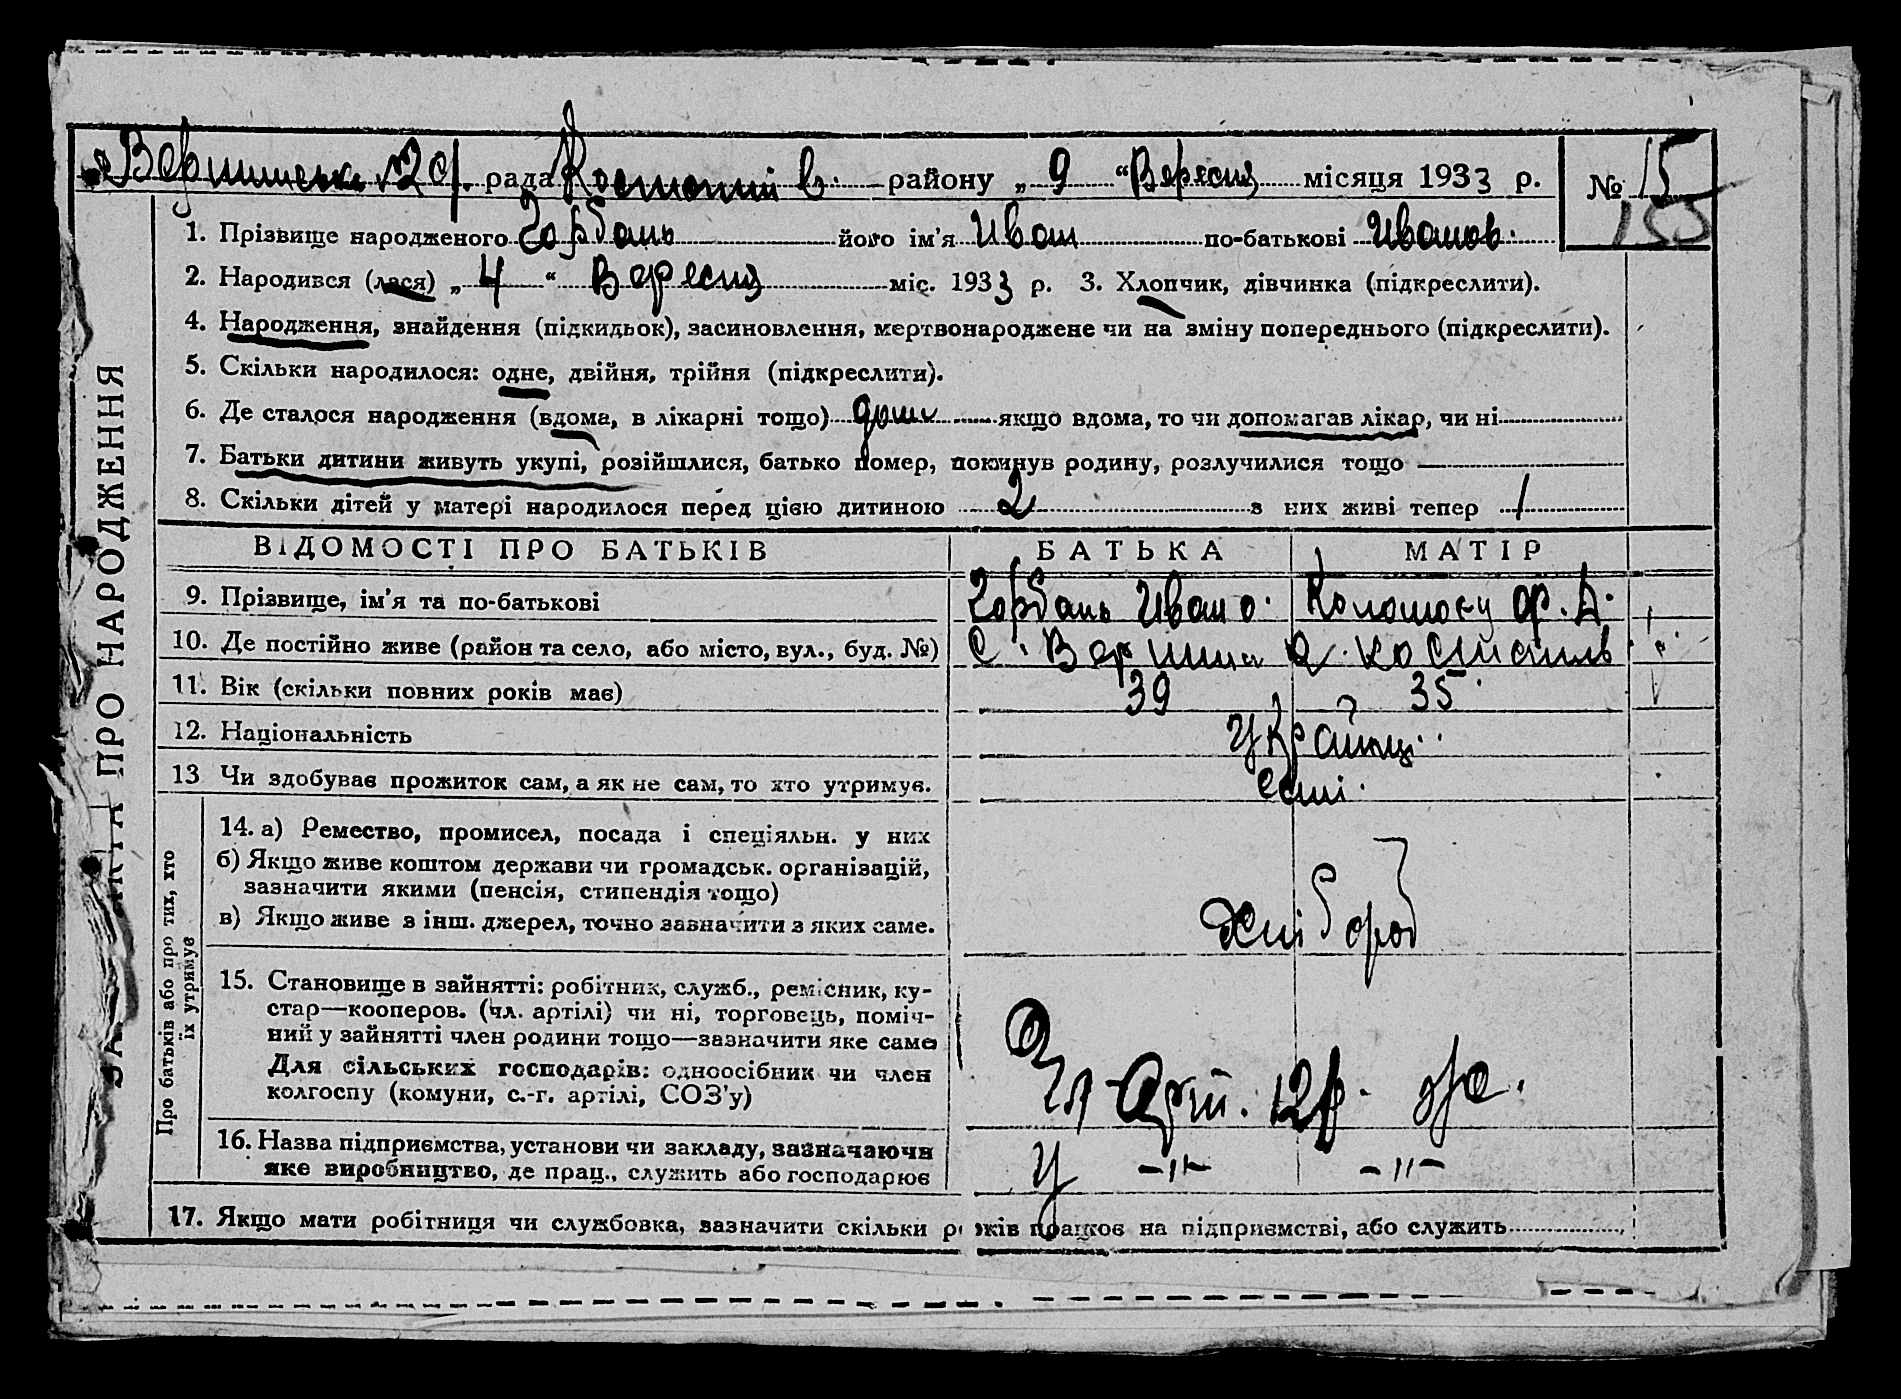 рада району „ 9 “ Вересня місяця 1933 р. № 15
155
1. Прізвище народженого Горбань його ім'я Иван по-батькові Иванов.
2. Народився (лася) „ 4 “ Вересня міс. 1933 р. 3. Хлопчик, дівчинка (підкреслити).
4. Народження, знайдення (підкидьок), засиновлення, мертвонароджене чи на зміну попереднього (підкреслити).
5. Скільки народилося: одне, двійня, трійня (підкреслити).
6. Де сталося народження (вдома, в лікарні тощо) якщо вдома, то чи допомагав лікар, чи ні
7. Батьки дитини живуть укупі, розійшлися, батько помер, покинув родину, розлучилися тощо
8. Скільки дітей у матері народилося перед цією дитиною 2 з них живі тепер 1
ВІДОМОСТІ ПРО БАТЬКІВ БАТЬКА МАТІР
9. Прізвище, ім'я та по-батькові Горбань Иван
10. Де постійно живе (район та село, або місто, вул., буд. №) с. Вершина
11. Вік (скільки повних років має) 39 35
12. Національність Українці
13 Чи здобуває прожиток сам, а як не сам, то хто утримує.
14. а) Ремество, промисел, посада і спеціяльн. у них
б) Якщо живе коштом держави чи громадськ. організацій,
зазначити якими (пенсія, стипендія тощо)
в) Якщо живе з інш. джерел, точно зазначити з яких саме.
хлібороб
15. Становище в зайнятті: робітник, служб., ремісник, ку-
стар—кооперов. (чл. артілі) чи ні, торговець, поміч-
ний у зайнятті член родини тощо—зазначити яке саме
Для сільських господарів: одноосібник чи член
колгоспу (комуни, с.-г. артілі, СОЗ'у)
16. Назва підприємства, установи чи закладу, зазначаючи
яке виробництво, де прац., служить або господарює
-"- -"-
17. Якщо мати робітниця чи службовка, зазначити скільки років працює на підприємстві, або служить
Про батьків або про тих, хто
їх утримує
ПРО НАРОДЖЕННЯ